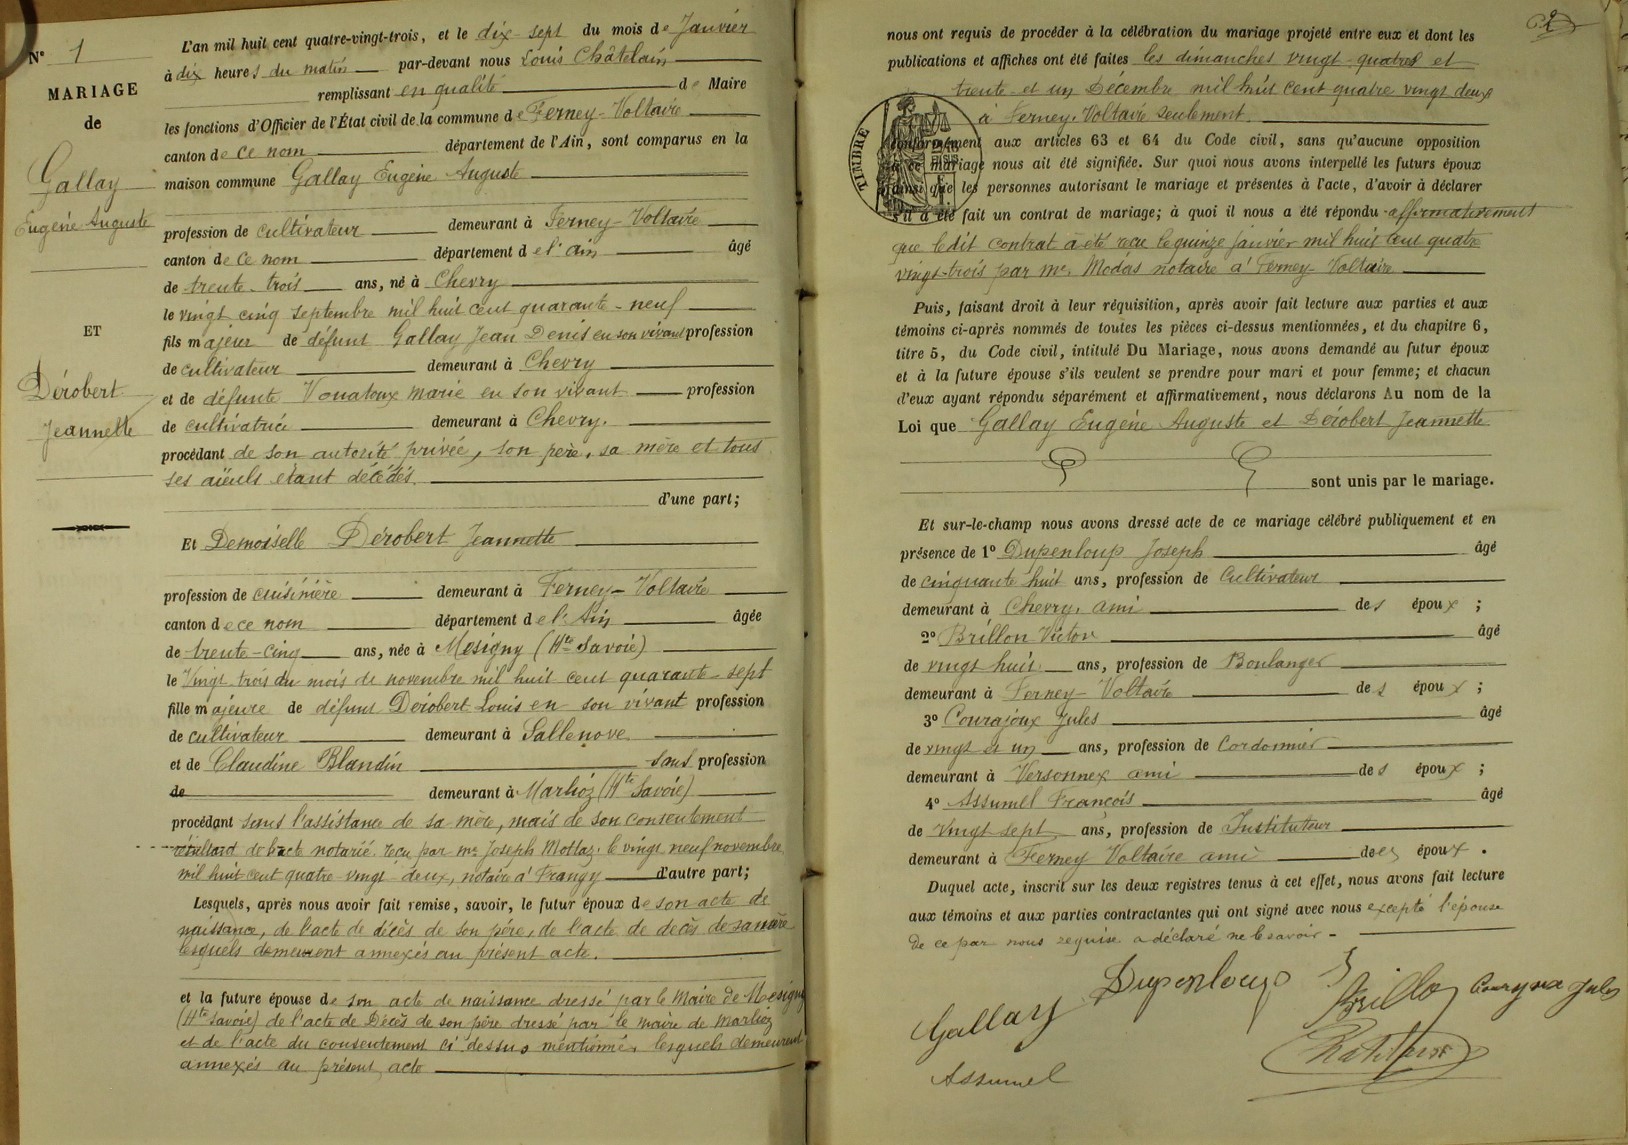 N° 1
MARIAGE
de
Gallay
Eugène Auguste
ET
Dérobert
Jeannette
L'an mil huit cent quatre-vingt-trois, et le dix-sept du mois de Janvier
à dix heures du matin par-devant nous Louis Châtelain
remplissant en qualité de Maire
les fonctions d'Officier de l'État civil de la commune de Ferney-Voltaire
canton de ce nom département de l'Ain, sont comparus en la
maison commune Gallay Eugène Auguste
profession de cultivateur demeurant à Ferney-Voltaire
canton de ce nom département de l'ain âgé
de trente-trois ans, né à Chevry
le vingt cinq septembre mil huit cent quarante-neuf
fils majeur de défunt Gallay Jean Denis en son vivant profession
de cultivateur demeurant à Chevry
et de défunte Vouatoux Marie en son vivant profession
de cultivatrice demeurant à Chevry.
procédant de son autorité privée, son père, sa mère et tous
ses aïeuls étant décédés.
d'une part;
Et Demoiselle Dérobert Jeannette
profession de cuisinière demeurant à Ferney-Voltaire
canton de ce nom département de l'Ain âgée
de trente-cinq ans, née à Mésigny (Hte Savoie)
le Vingt trois du mois de novembre mil huit cent quarante-sept
fille majeure de défunt Dérobert Louis en son vivant profession
de cultivateur demeurant à Sallenove
et de Claudine Blandin sans profession
de demeurant à Marlioz (Hte Savoie)
procédant sans l'assistance de sa mère, mais de son consentement
résultant de l'acte notarié reçu par me Joseph Mottaz, le vingt neuf novembre
mil huit cent quatre-vingt-deux, notaire à Frangy d'autre part;
Lesquels, après nous avoir fait remise, savoir, le futur époux de son acte de
naissance, de l'acte de décès de son père, de l'acte de decès de sa mère
lesquels demeurent annexés au présent acte.
et la future épouse de son acte de naissance dressé par le Maire de Mésigny
(Hte Savoie) de l'acte de Décès de son père dressé par le maire de Marlioz
et de l'acte du consentement ci dessus mentionné, lesquels demeurent
annexés au présent acte
2
nous ont requis de procéder à la célébration du mariage projeté entre eux et dont les
publications et affiches ont été faites les dimanches vingt-quatre et
trente et un Décembre mil huit cent quatre vingt deux
à Ferney-Voltaire seulement.
TIMBRE
conformément aux articles 63 et 64 du Code civil, sans qu'aucune opposition
à ce mariage nous ait été signifiée. Sur quoi nous avons interpellé les futurs époux
ainsi que les personnes autorisant le mariage et présentes à l'acte, d'avoir à déclarer
s'il a été fait un contrat de mariage; à quoi il nous a été répondu affirmativement
que ledit contrat a été reçu le quinze janvier mil huit cent quatre
vingt-trois par me Modas notaire à Ferney-Voltaire
Puis, faisant droit à leur réquisition, après avoir fait lecture aux parties et aux
témoins ci-après nommés de toutes les pièces ci-dessus mentionnées, et du chapitre 6,
titre 5, du Code civil, intitulé Du Mariage, nous avons demandé au futur époux
et à la future épouse s'ils veulent se prendre pour mari et pour femme; et chacun
d'eux ayant répondu séparément et affirmativement, nous déclarons Au nom de la
Loi que Gallay Eugène Auguste et Dérobert Jeannette
sont unis par le mariage.
Et sur-le-champ nous avons dressé acte de ce mariage célébré publiquement et en
présence de 1° Dupenloup Joseph âgé
de cinquante huit ans, profession de Cultivateur
demeurant à Chevry, ami des époux;
2° Brillon Victor âgé
de vingt huit ans, profession de Boulanger
demeurant à Ferney-Voltaire des époux;
3° Courajoux Jules âgé
de vingt et un ans, profession de Cordonnier
demeurant à Versonnex ami des époux;
4° Assumel François âgé
de vingt sept ans, profession de Instituteur
demeurant à Ferney Voltaire ami des époux.
Duquel acte, inscrit sur les deux registres tenus à cet effet, nous avons fait lecture
aux témoins et aux parties contractantes qui ont signé avec nous excepté l'épouse
de ce par nous requise a déclaré ne le savoir -
Dupenloup
Gallay
Assumel